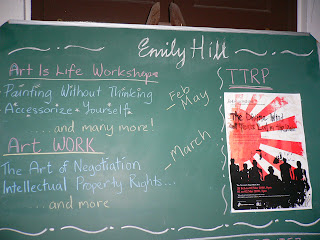 Emily Hill
Art Is Life Workshops
Painting Without Thinking
Accessorize Yourself
.....and many more!
Feb
May
Art WORK
The Art of Negotiation
Intellectual Property Rights...
.....and more
March
TTRP
The Divine Wind